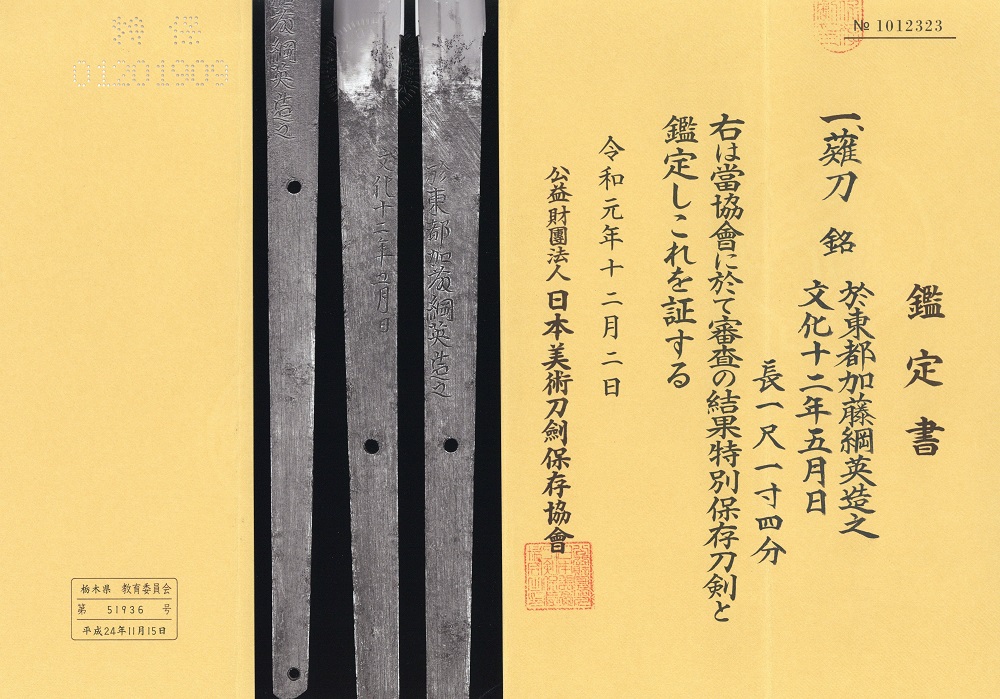 № 1012323
鑑定書
一、薙刀 銘 於東都加藤綱英造之
文化十二年五月日
長一尺一寸四分
右は當協會に於て審査の結果特別保存刀剣と
鑑定しこれを証する
令和元年十二月二日
公益財團法人日本美術刀劍保存協會
於東都加藤綱英造之
文化十二年五月日
藤綱英造之
特保
01201909
栃木県 教育委員会
第 51936 号
平成24年11月15日